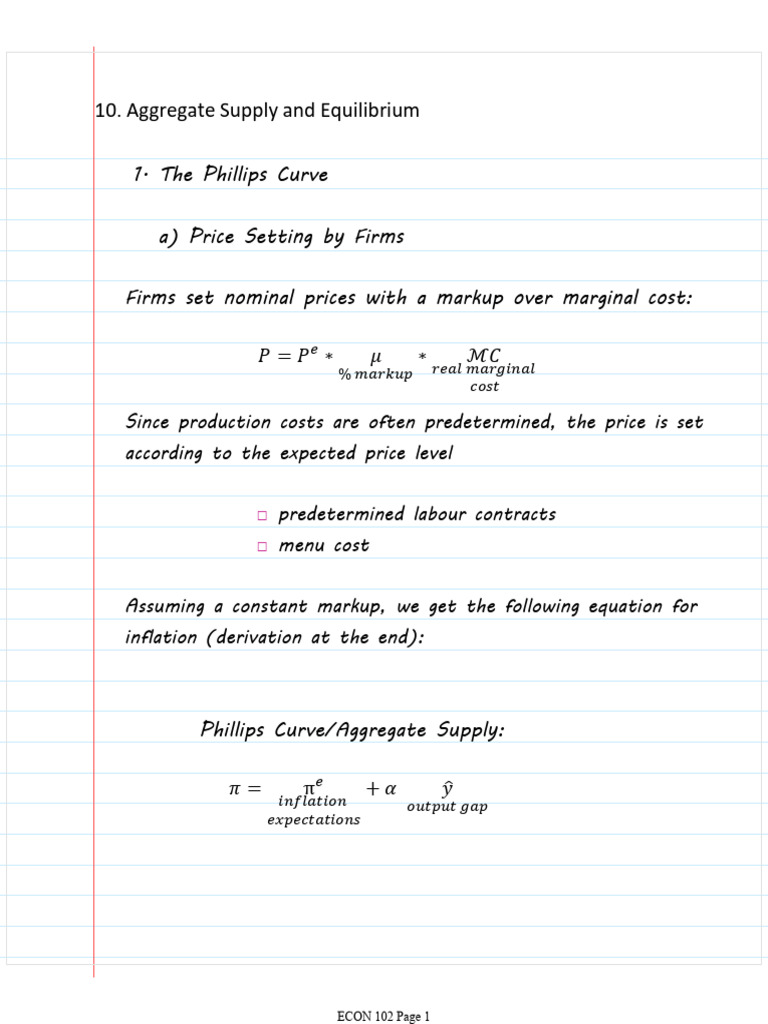 10. Aggregate Supply and Equilibrium
1. The Phillips Curve
a) Price Setting by Firms
Firms set nominal prices with a markup over marginal cost:
𝑃 = 𝑃ᵉ ∗ 𝜇 ∗ ℳ𝐶
% markup real marginal
cost
Since production costs are often predetermined, the price is set
according to the expected price level
□ predetermined labour contracts
□ menu cost
Assuming a constant markup, we get the following equation for
inflation (derivation at the end):
Phillips Curve/Aggregate Supply:
𝜋 = πᵉ + 𝛼 ŷ
inflation output gap
expectations
ECON 102 Page 1